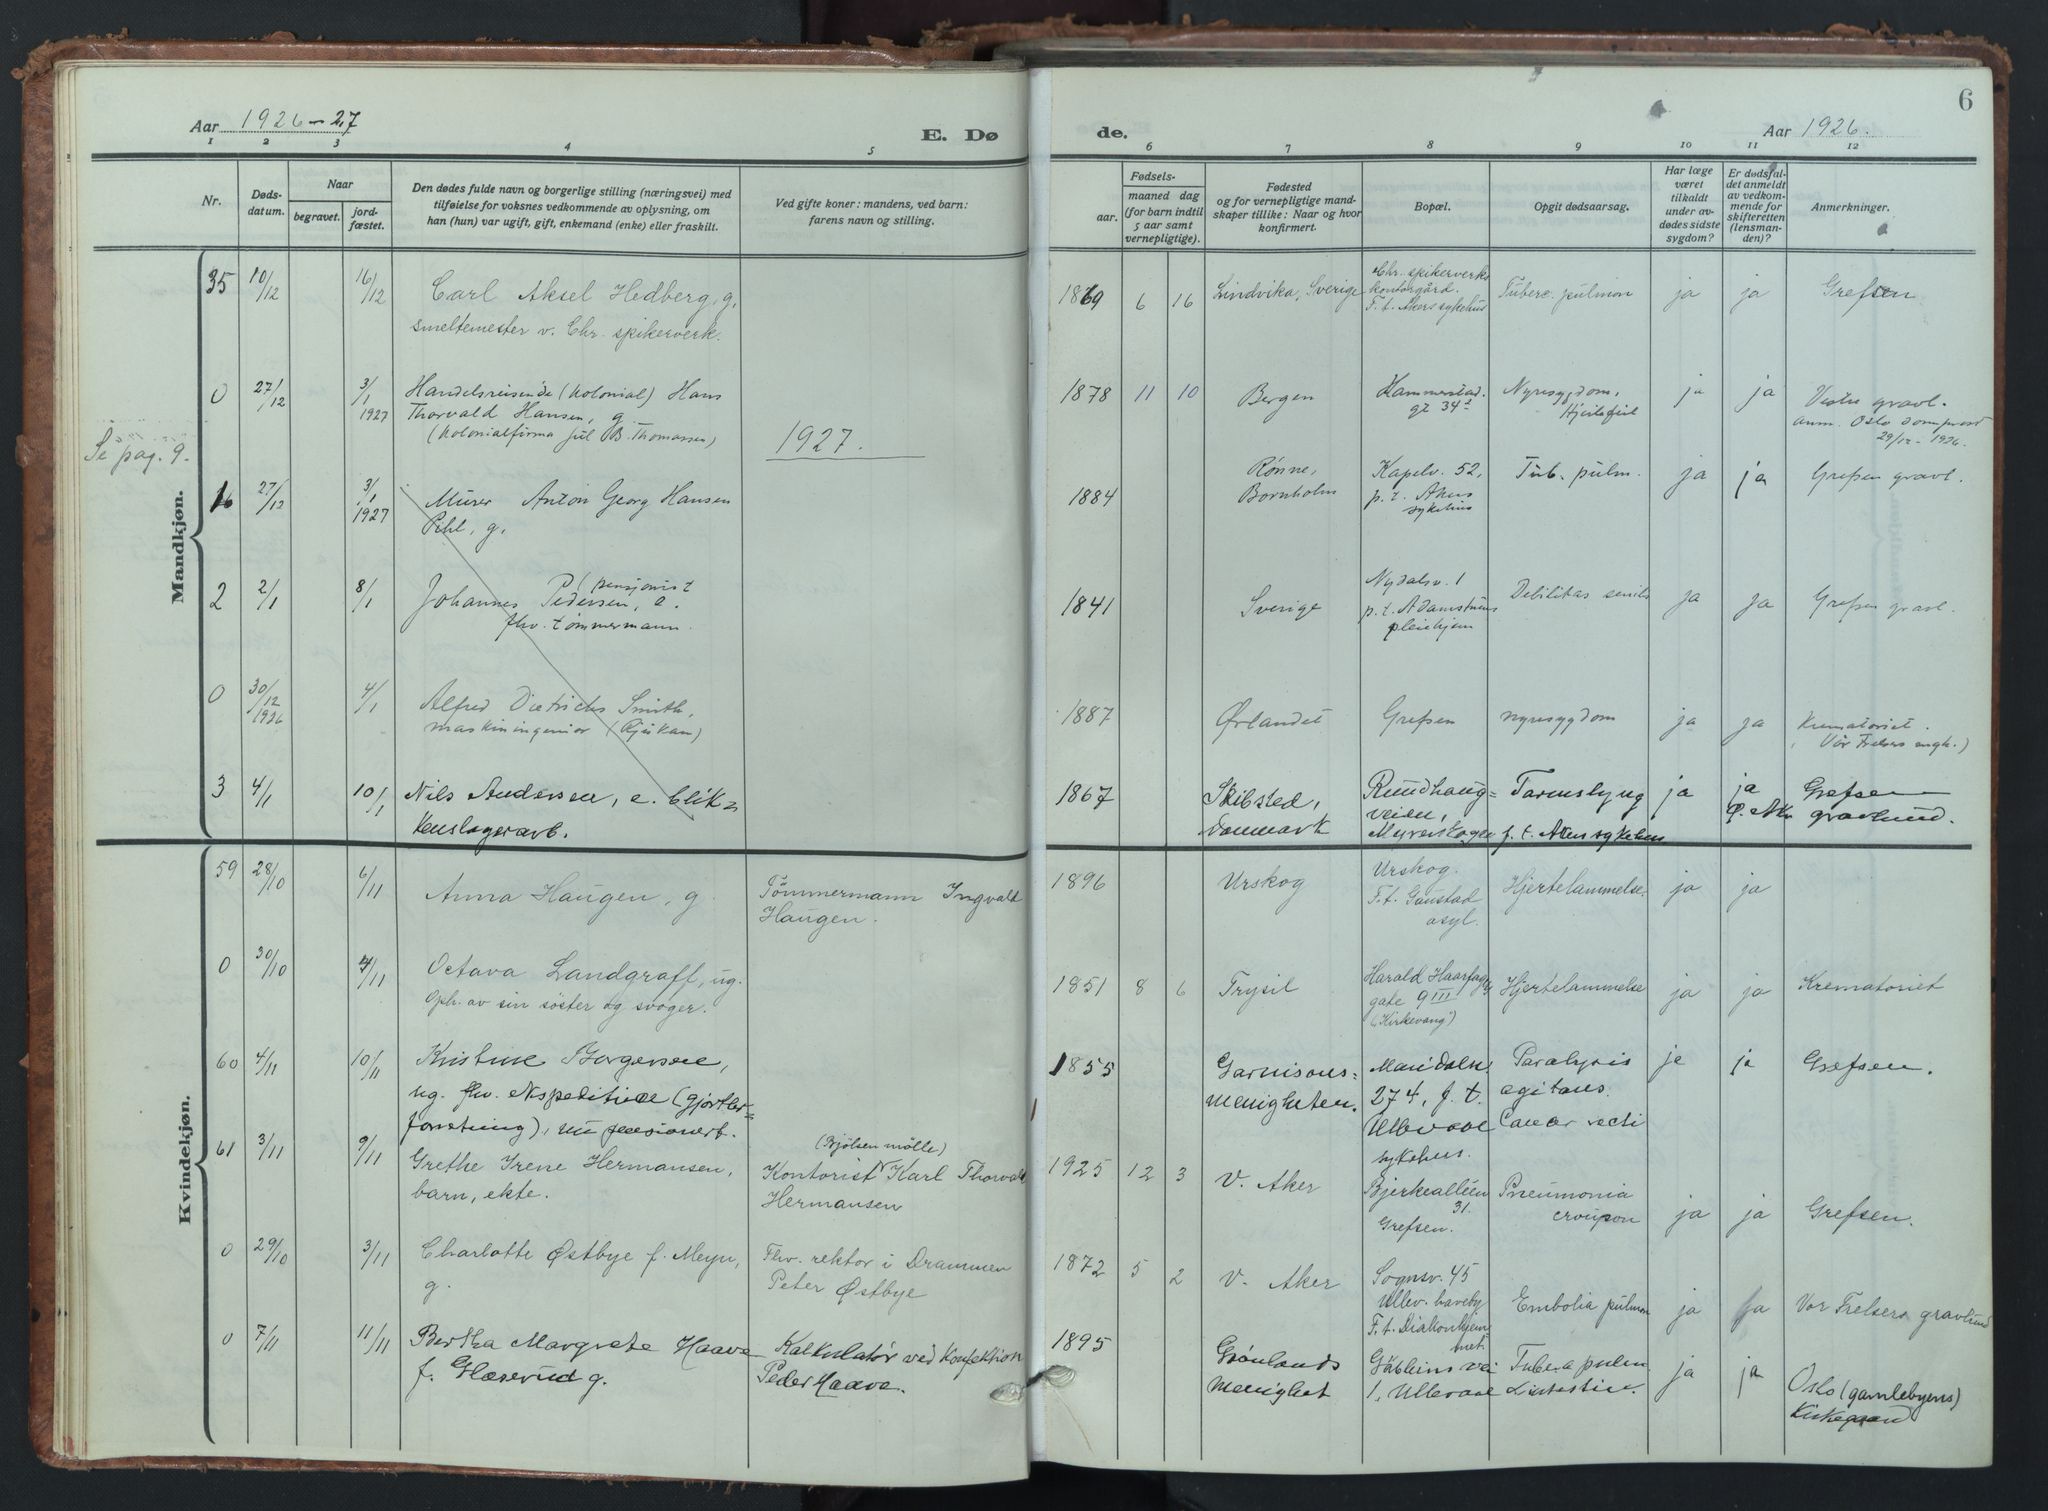 Aar 1926-27
E. Dø
1 2 3 4 5
Nr.
Døds-
datum.
Naar
begravet.
jord-
fæstet.
Den dødes fulde navn og borgerlige stilling (næringsvei) med
tilføielse for voksnes vedkommende av oplysning, om
han (hun) var ugift, gift, enkemand (enke) eller fraskilt.
Ved gifte koner: mandens, ved barn:
farens navn og stilling.
Mandkjøn.
35 10/12 16/12 Carl Aksel Hedberg, g,
smeltemester v. Chr. spikerverk.
0 27/12 3/1 1927 Handelsreisende (Kolonial) Hans
Thorvald Hansen, g
(Kolonialfirma Jul B. Thomassen)
1927.
Se pag. 9.
1 27/12 3/1 1927 Murer Anton Georg Hansen
Pihl, g,
2 2/1 8/1 Johannes Pedersen, e. pensjonist
fhv. tømmermann.
0 30/12 1926 4/1 Alfred Dietrichs Smith,
maskiningeniør (Rjukan)
3 4/1 10/1 Nils Andersen, e. blik=
kenslagerarb.
Kvindekjøn.
59 28/10 6/11 Anna Haugen, g. Tömmermann Ingvald
Haugen.
0 30/10 4/11 Octava Landgraff, ug.
Oph. av sin söster og svoger.
60 4/11 10/11 Kristine Borgersen,
ug. fhv. ekspeditrice (gjørtler=
forretning), nu pensionert.
61 3/11 9/11 Grethe Irene Hermansen,
barn, ekte.
(Bjölsen mölle)
Kontorist Karl Thorvald
Hermansen
0 29/10 3/11 Charlotte Østbye f. Meyn,
g.
Fhv. rektor i Drammen
Peter Østbye
0 7/11 11/11 Bertha Margrete Haave
f. Glæserud g.
Kalkulatør ved Konfektion
Peder Haave.
de.
Aar 1926.
6
6 7 8 9 10 11 12
Fødsels-
aar. maaned dag
(for barn indtil
5 aar samt
vernepligtige).
Fødested
og for vernepligtige mand-
skaper tillike: Naar og hvor
konfirmert.
Bopæl.
Opgit dødsaarsag.
Har læge
været
tilkaldt
under av-
dødes sidste
sygdom?
Er dødsfal-
det anmeldt
av vedkom-
mende for
skifteretten
(lensman-
den)?
Anmerkninger.
1869 6 16 Lindvika, Sverige
Chr. spikerverks
kontorgård.
F. t. Akers sykehus
Tuberc. pulmon ja ja Grefsen
1878 11 10 Bergen
Hammerstad.
gt 34
Nyresygdom,
Hjertefeil
ja ja
Vestre gravl.
anm. Oslo domprost
29/12 - 1926.
1884
Rønne,
Bornholm
Kapelv. 52,
p. t. Akers
sykehus
Tub. pulm. ja ja Grefsen gravl.
1841 Sverige
Nydalsv. 1
p. t. Adamstuens
pleiehjem
Debilitas senilis ja ja Grefsen gravl.
1887 Ørlandet Grefsen nyresygdom ja ja
Krematoriet.
(Vår Frelsers
1867
Skibsted,
Danmark
Rundhaug=
veien,
Myrerskogen
Tarmslyng
f. t. Aker sykehus
ja ja
Grefsen
gravlund.
1896 Urskog
Urskog.
F. t. Gaustad
asyl.
Hjertelammelse. ja ja
1851 8 6 Trysil
Harald Haarfagres
gate 9 III
("Kirkevang")
Hjertelammelse ja ja Krematoriet
1855
Garnisons=
menigheten.
Maridalsv.
274, f. t.
Ullevaal
sykehus.
Paralysis
agitans.
Cancer recti
ja ja Grefsen.
1925 12 3 V. Aker
Bjerkealléen
31.
Grefsen.
Pneumonia
croupon
ja ja Grefsen.
1872 5 2 V. Aker
Sognsv. 45
Ullev. haveby
F. t. Diakonhjem-
met.
Embolia pulmon ja ja Vor Frelsers gravlund
1895
Grønlands
menighet
vei
1, Ullevaal
Tuberc. pulm.
ja ja
Oslo (gamlebyens)
Kirkegaard